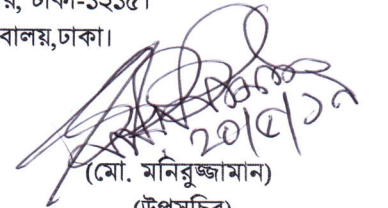 ঢাকা-১২১৫।
বালয়,ঢাকা।
২০/৫/১৭
(মো. মনিরুজ্জামান)
(উপসচিব)